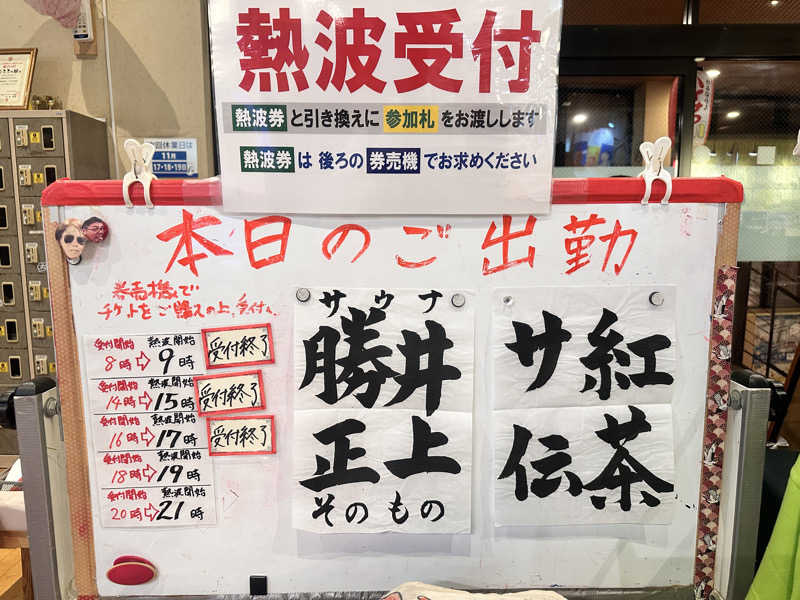 熱波受付
熱波券と引き換えに 参加札 をお渡しします
熱波券 は 後ろの 券売機 でお求めください
回休業日は
11月
17・18・19日
本日のご出勤
券売機で
チケットをご購入の上、受付へ
受付開始 熱波開始
8時⇨9時
受付終了
受付開始 熱波開始
14時⇨15時
受付終了
受付開始 熱波開始
16時⇨17時
受付終了
受付開始 熱波開始
18時⇨19時
受付開始 熱波開始
20時⇨21時
サウナ
井上
勝正
そのもの
紅茶
サ伝